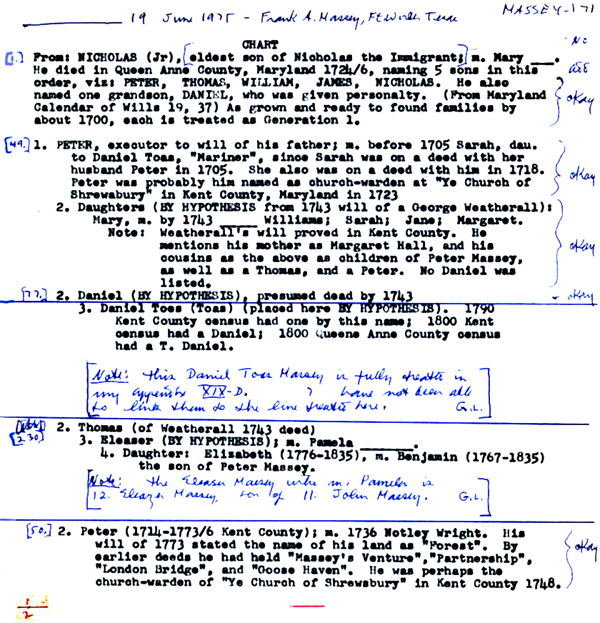 19 June 1975 - Frank A. Massey, Ft Worth, Texas MASSEY-171
CHART
[1.] From: NICHOLAS (Jr), [eldest son of Nicholas the Immigrant;] m. Mary ___.
He died in Queen Anne County, Maryland 1724/6, naming 5 sons in this
order, viz: PETER, THOMAS, WILLIAM, JAMES, NICHOLAS. He also
named one grandson, DANIEL, who was given personalty. (From Maryland
Calendar of Wills 19, 37) As grown and ready to found families by
about 1700, each is treated as Generation 1.
No
okay
[49.] 1. PETER, executor to will of his father; m. before 1705 Sarah, dau.
to Daniel Toas, "Mariner", since Sarah was on a deed with her
husband Peter in 1705. She also was on a deed with him in 1718.
Peter was probably him named as church-warden at "Ye Church of
Shrewsbury" in Kent County, Maryland in 1723
okay
2. Daughters (BY HYPOTHESIS from 1743 will of a George Weatherall):
Mary, m. by 1743 _____ Williams; Sarah; Jane; Margaret.
Note: Weatherall's will proved in Kent County. He
mentions his mother as Margaret Hall, and his
cousins as the above as children of Peter Massey,
as well as a Thomas, and a Peter. No Daniel was
listed.
okay
[77.] 2. Daniel (BY HYPOTHESIS), presumed dead by 1743 - okay
3. Daniel Toes (Toas) (placed here BY HYPOTHESIS). 1790
Kent County census had one by this name; 1800 Kent
census had a Daniel; 1800 Queene Anne County census
had a T. Daniel.
[Note: this Daniel Toas Massey is fully treated in
my appendix XIX-D. I have not been able
to link them to the line treated here. G.L.]
[230.] 2. Thomas (of Weatherall 1743 deed)
3. Eleaser (BY HYPOTHESIS); m. Pamela _____.
4. Daughter: Elizabeth (1776-1835), m. Benjamin (1767-1835)
the son of Peter Massey.
[Note: the Eleaser Massey who m. Pamela is
12. Eleazer Massey, son of 11. John Massey. G.L.]
[50.] 2. Peter (1714-1773/6 Kent County); m. 1736 Notley Wright. His
will of 1773 stated the name of his land as "Forest". By
earlier deeds he had held "Massey's Venture","Partnership",
"London Bridge", and "Goose Haven". He was perhaps the
church-warden of "Ye Church of Shrewsbury" in Kent County 1748.
okay
2